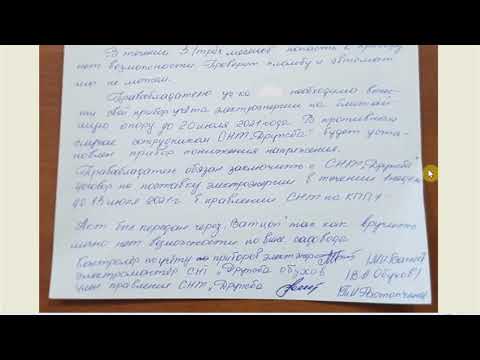 В течении 3/трёх месяцев попасть к прибору
нет возможности. Проверить пломбу и автомат
мы не можем.
Правообладателю уч-ка необходимо вынес-
ти свой прибор учёта электроэнергии на ближай
шую опору до 20 июля 2021 года. В противном
случае сотрудником СНТ "Дружба" будет уста-
новлен прибор понижения напряжения.
Правообладатель обязан заключить с СНТ "Дружба"
договор на поставку электроэнергии в течении
до 13 июля 2021 г. в правлении СНТ на КПП 1
Акт был передан через "Ватцап" так как вручить
лично нет возможности по вине садовода
Контролер по учёту приборов
электромонтер СНТ "Дружба" Обухов /В.А Обухов/
член правления СНТ "Дружба"